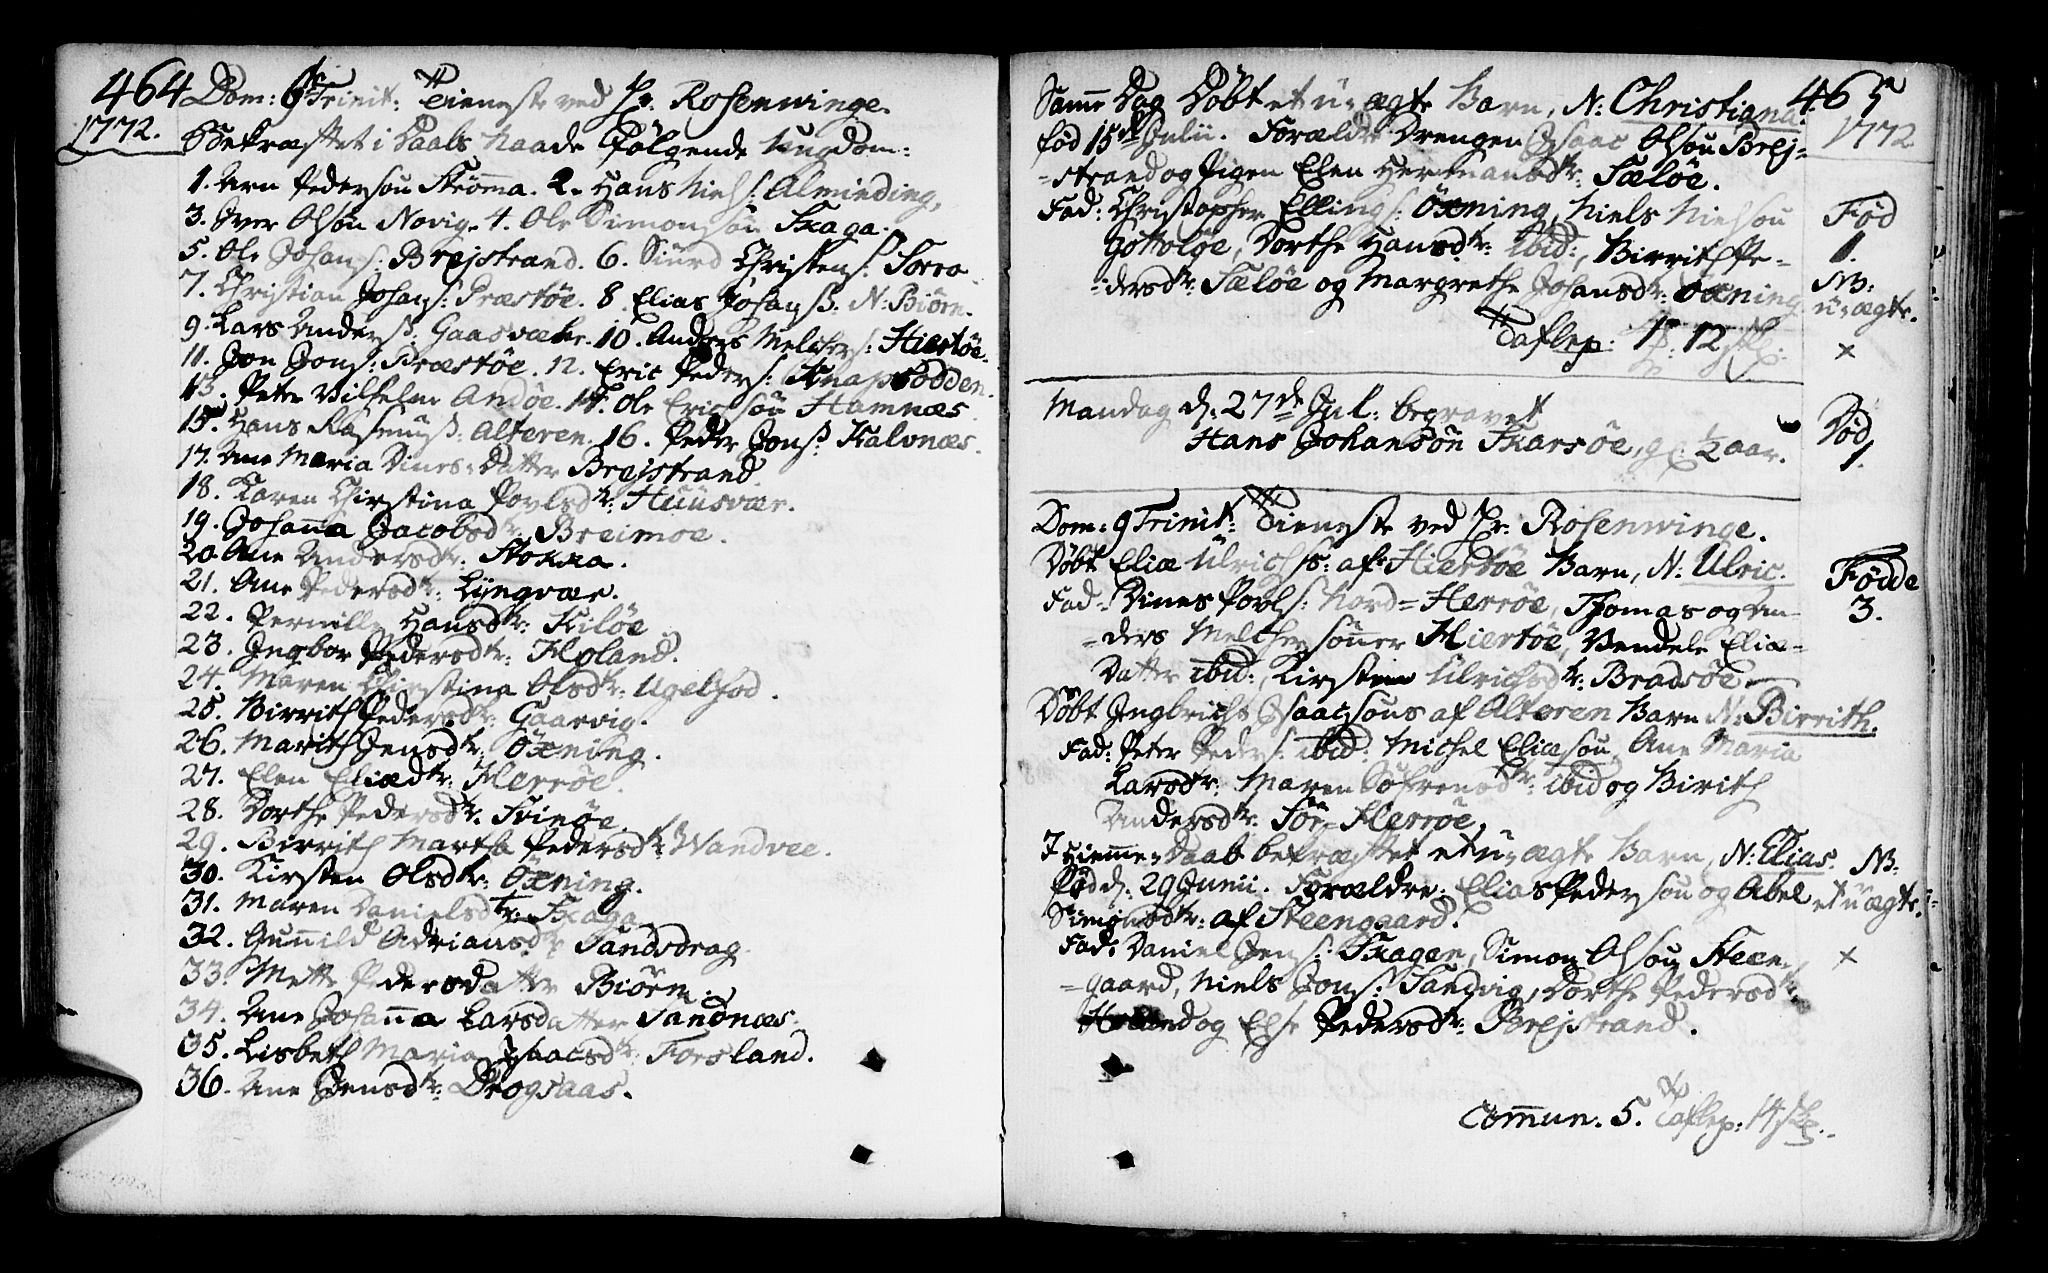 464 Dom: 6 Trinit: Tieneste ved Hr. Rosenvinge.
1772. Bekræftet i Daabs Naade følgende Ungdom:
1. Arn Pedersøn Strømma. 2. Hans Niels: Alminding,
3. Iver Olsøn Novig. 4. Ole Simonsøn Skaga.
5. Ole Johans: Brejstrand. 6. Siurd Christens: Torro
7. Christian Johans: Præstøe. 8. Elias Johans: N. Biørn.
9. Lars Anders: Gaasvær. 10. Anders Melchers: Hiertøe.
11. Jon Jons: Præstøe. 12. Eric Peders: Knapsodden.
13. Peter Vilhelm Andøe. 14. Ole Ericsøn Hamnæs.
15. Hans Rasmus: Alteren. 16. Peder Jons: Kalvnæs.
17. Ane Maria Dines-Datter Brejstrand
18. Karen Christina Povlsdtr: Huusvær.
19. Johanna Jacobsdtr Breimoe.
20 Ane Andersdtr: Stokka.
21. Ane Pedersdtr: Lyngvær.
22. Pernille Hansdtr: Kiløe
23. Ingbor Pedersdtr: Holand.
24. Maren Christina Olsdtr: Ugelsfod.
25. Birrith Pedersdtr: Gaarvig.
26. Marith Jensdtr: Öxning.
27. Elen Eliædtr: Herrøe.
28. Dorthe Pedersdtr. Svinøe.
29. Birrith Martha Pedersdtr: Wandvee.
30. Kirsten Olsdtr: Öxning.
31. Maren Danielsdtr: Skaga
32. Gunnild Adriansdtr Sandsdrag.
33. Mette Pedersdatter Biørn.
34. Ane Johanna Larsdatter Sandnæs.
35. Lisbeth Maria Isaacsdtr: Forsland.
36. Ane Jensdtr: Drogsaas.
Samme Dag Døbt et u-ægte Barn, N: Christiana. 465
fød 15de Julii. Forældre Drengen Isaac Olsøn Brej-
-strand og Pigen Elen Hermansdtr: Sæløe.
Fad: Christopher Ellings: Öxning, Niels Nielsøn
Gottoløe, Dorthe Hansdtr: ibid:, Birrith Pe-
-dersdtr: Sæløe og Margrethe Johansdtr: Öxning
Taflep: 12
1772
Fød
1.
NB:
u-ægte.
x
Mandag d: 27de Jul: begravet
Hans Johansøn Skarsøe, g: ½ aar.
Død
1.
Dom: 9 Trinit: Tieneste ved Hr. Rosenvinge.
Døbt Eliæ Ulrichs: af Hiertøe Barn, N: Ulric.
Fad: Dines Povls: Nord-Herrøe, Thomas og An-
-ders Melchersønner Hiertøe, Vendele Eliæ-
Datter ibid:, Kirsten Ulrichsdtr: Bradsøe
Døbt Ingbricht Isaacsøns af Alteren Barn N: Birrith.
Fad: Peter Peders: ibid: Michel Eliæsøn, Ane Maria
Larsdtr: Maren Sofrensdtr: ibid og Birith
Andersdtr: Sör-Herrøe.
Fødde
3.
7 Hieme-Daab bekræftet et u-ægte Barn, N: Elias.
Fød d: 29 Junii. Forældre: Elias Pedersøn og Abel
Simonsdtr: af Steengaard.
Fad: Daniel Jens: Skagen, Simon Olsøn Steen-
-gaard, Niels Jons: Sandvig, Dorthe Pedersdtr:
og Else Pedersdtr: Brejstrand.
NB:
et u-ægte.
x
Commun. 5. Taflep: 14 sk.